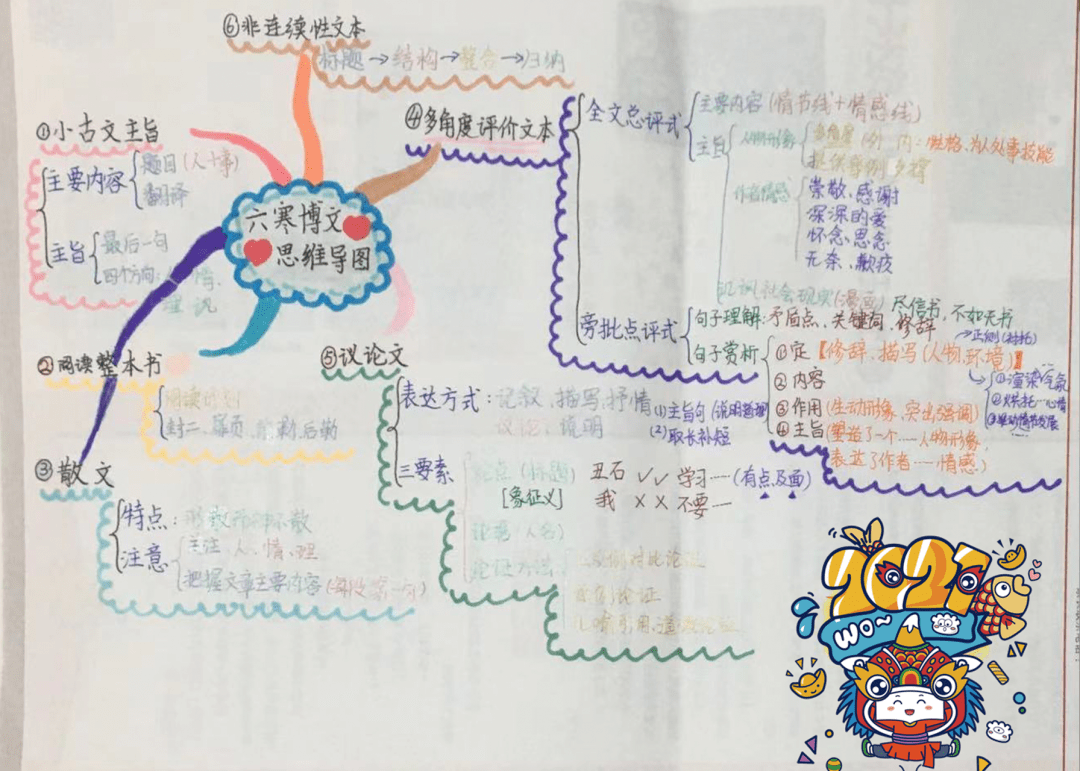 六寒博文
思维导图
①小古文主旨
主要内容
题目(人+事)
翻译
主旨
最后一句
四个方向:
情、
理 讯
②阅读整本书
阅读计划
封二、扉页、
③散文
特点:形散神不散
注意
关注 人、情、理
把握文章主要内容(每段第一句)
④多角度评价文本
全文总评式
主要内容(情节线+情感线)
主旨
人物形象
多角度(外 内:性格、为人处事技能
提供事例支撑
作者情感
崇敬、感谢
深深的爱
怀念、思念
无奈、歉疚
社会现实(漫画)
尽信书,不如无书
旁批点评式
句子理解:矛盾点、关键词、修辞
→正侧(衬托)
句子赏析
①定【修辞、描写(人物、环境)】
②内容
③作用(生动形象、突出强调)
④主旨(塑造了一个……人物形象,
表达了作者……情感)
①渲染气氛
②烘托…心情
③推动情节发展
⑤议论文
表达方式:记叙、描写、抒情
议论、说明
(1)主旨句(说明道理)
(2)取长补短
三要素
论点(标题)
[象征义]
丑石 ✓✓ 学习…(有点及面)
我 ✗✗ 不要…
论据 人名)
论证方法
对比论证
举例论证
引用、道理论证
⑥非连续性文本
标题→结构→整合→归纳
2021
WO~